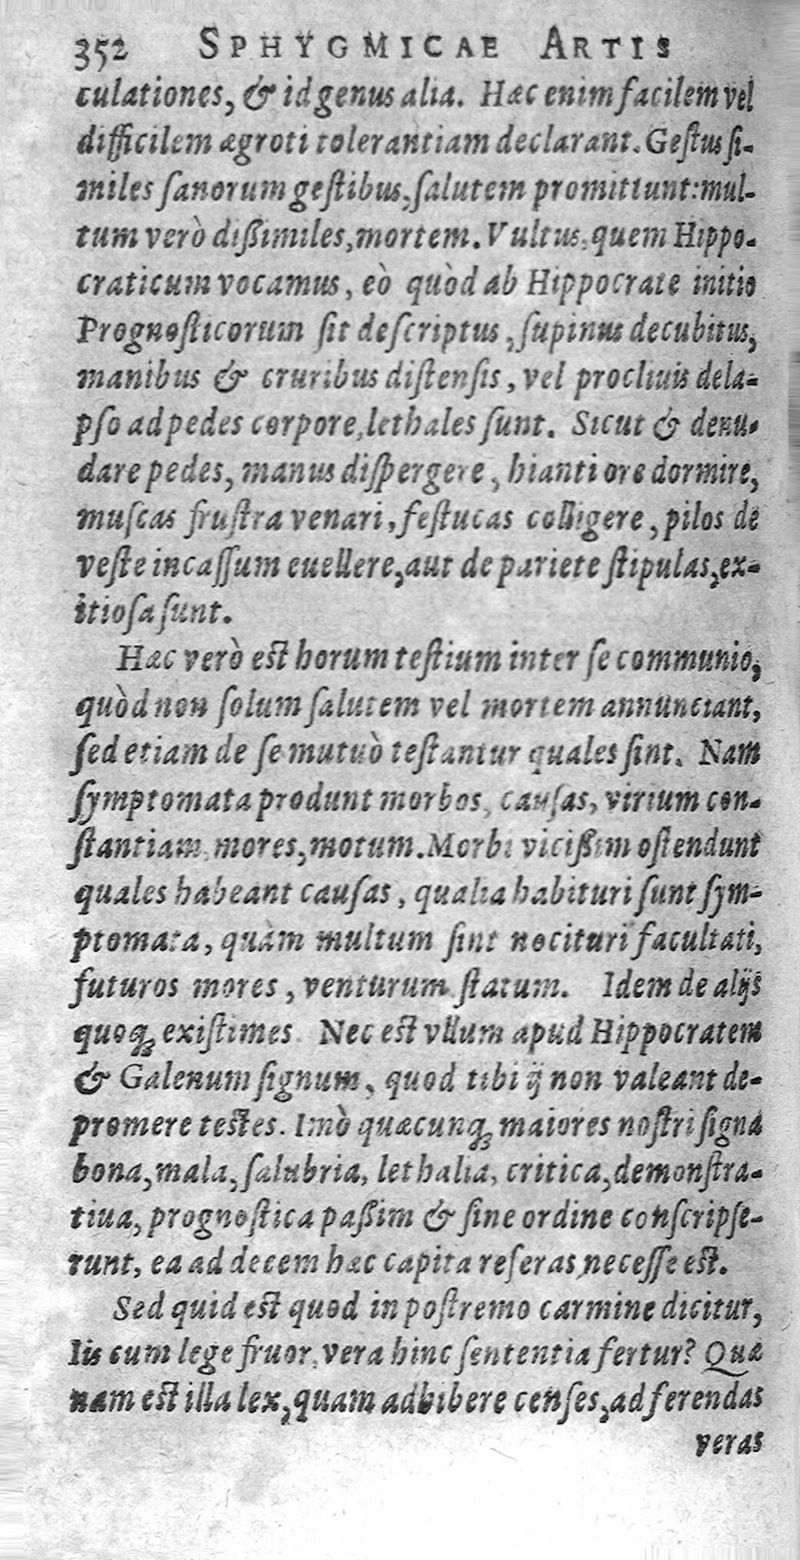 352 SPHYGMICAE ARTIS
culationes, & id genus alia. Hæc enim facilem vel
difficilem ægroti tolerantiam declarant. Gestus si-
miles sanorum gestibus, salutem promittunt: mul-
tum verò dißimiles, mortem. Vultus, quem Hippo-
craticum vocamus, eò quòd ab Hippocrate initio
Prognosticorum sit descriptus, supinus decubitus,
manibus & cruribus distensis, vel procliuis dela-
pso ad pedes corpore, lethales sunt. Sicut & denu-
dare pedes, manus dispergere, hianti ore dormire,
muscas frustra venari, festucas colligere, pilos de
veste incassum euellere, aut de pariete stipulas, ex-
itiosa sunt.
Hæc verò est horum testium inter se communio,
quòd non solum salutem vel mortem annunciant,
sed etiam de se mutuò testantur quales sint. Nam
symptomata produnt morbos, causas, virium con-
stantiam, mores, motum. Morbi vicißim ostendunt
quales habeant causas, qualia habituri sunt sym-
ptomata, quàm multum sint nocituri facultati,
futuros mores, venturum statum. Idem de alijs
quoqꝫ existimes. Nec est vllum apud Hippocratem
& Galenum signum, quod tibi ij non valeant de-
promere testes. Imò quæcunqꝫ maiores nostri signa
bona, mala, salubria, lethalia, critica, demonstra-
tiua, prognostica paßim & sine ordine conscripse-
runt, ea ad decem hæc capita referas necesse est.
Sed quid est quod in postremo carmine dicitur,
Iis cum lege fruor, vera hinc sententia fertur? Quæ
nam est illa lex, quam adhibere censes, ad ferendas
veras